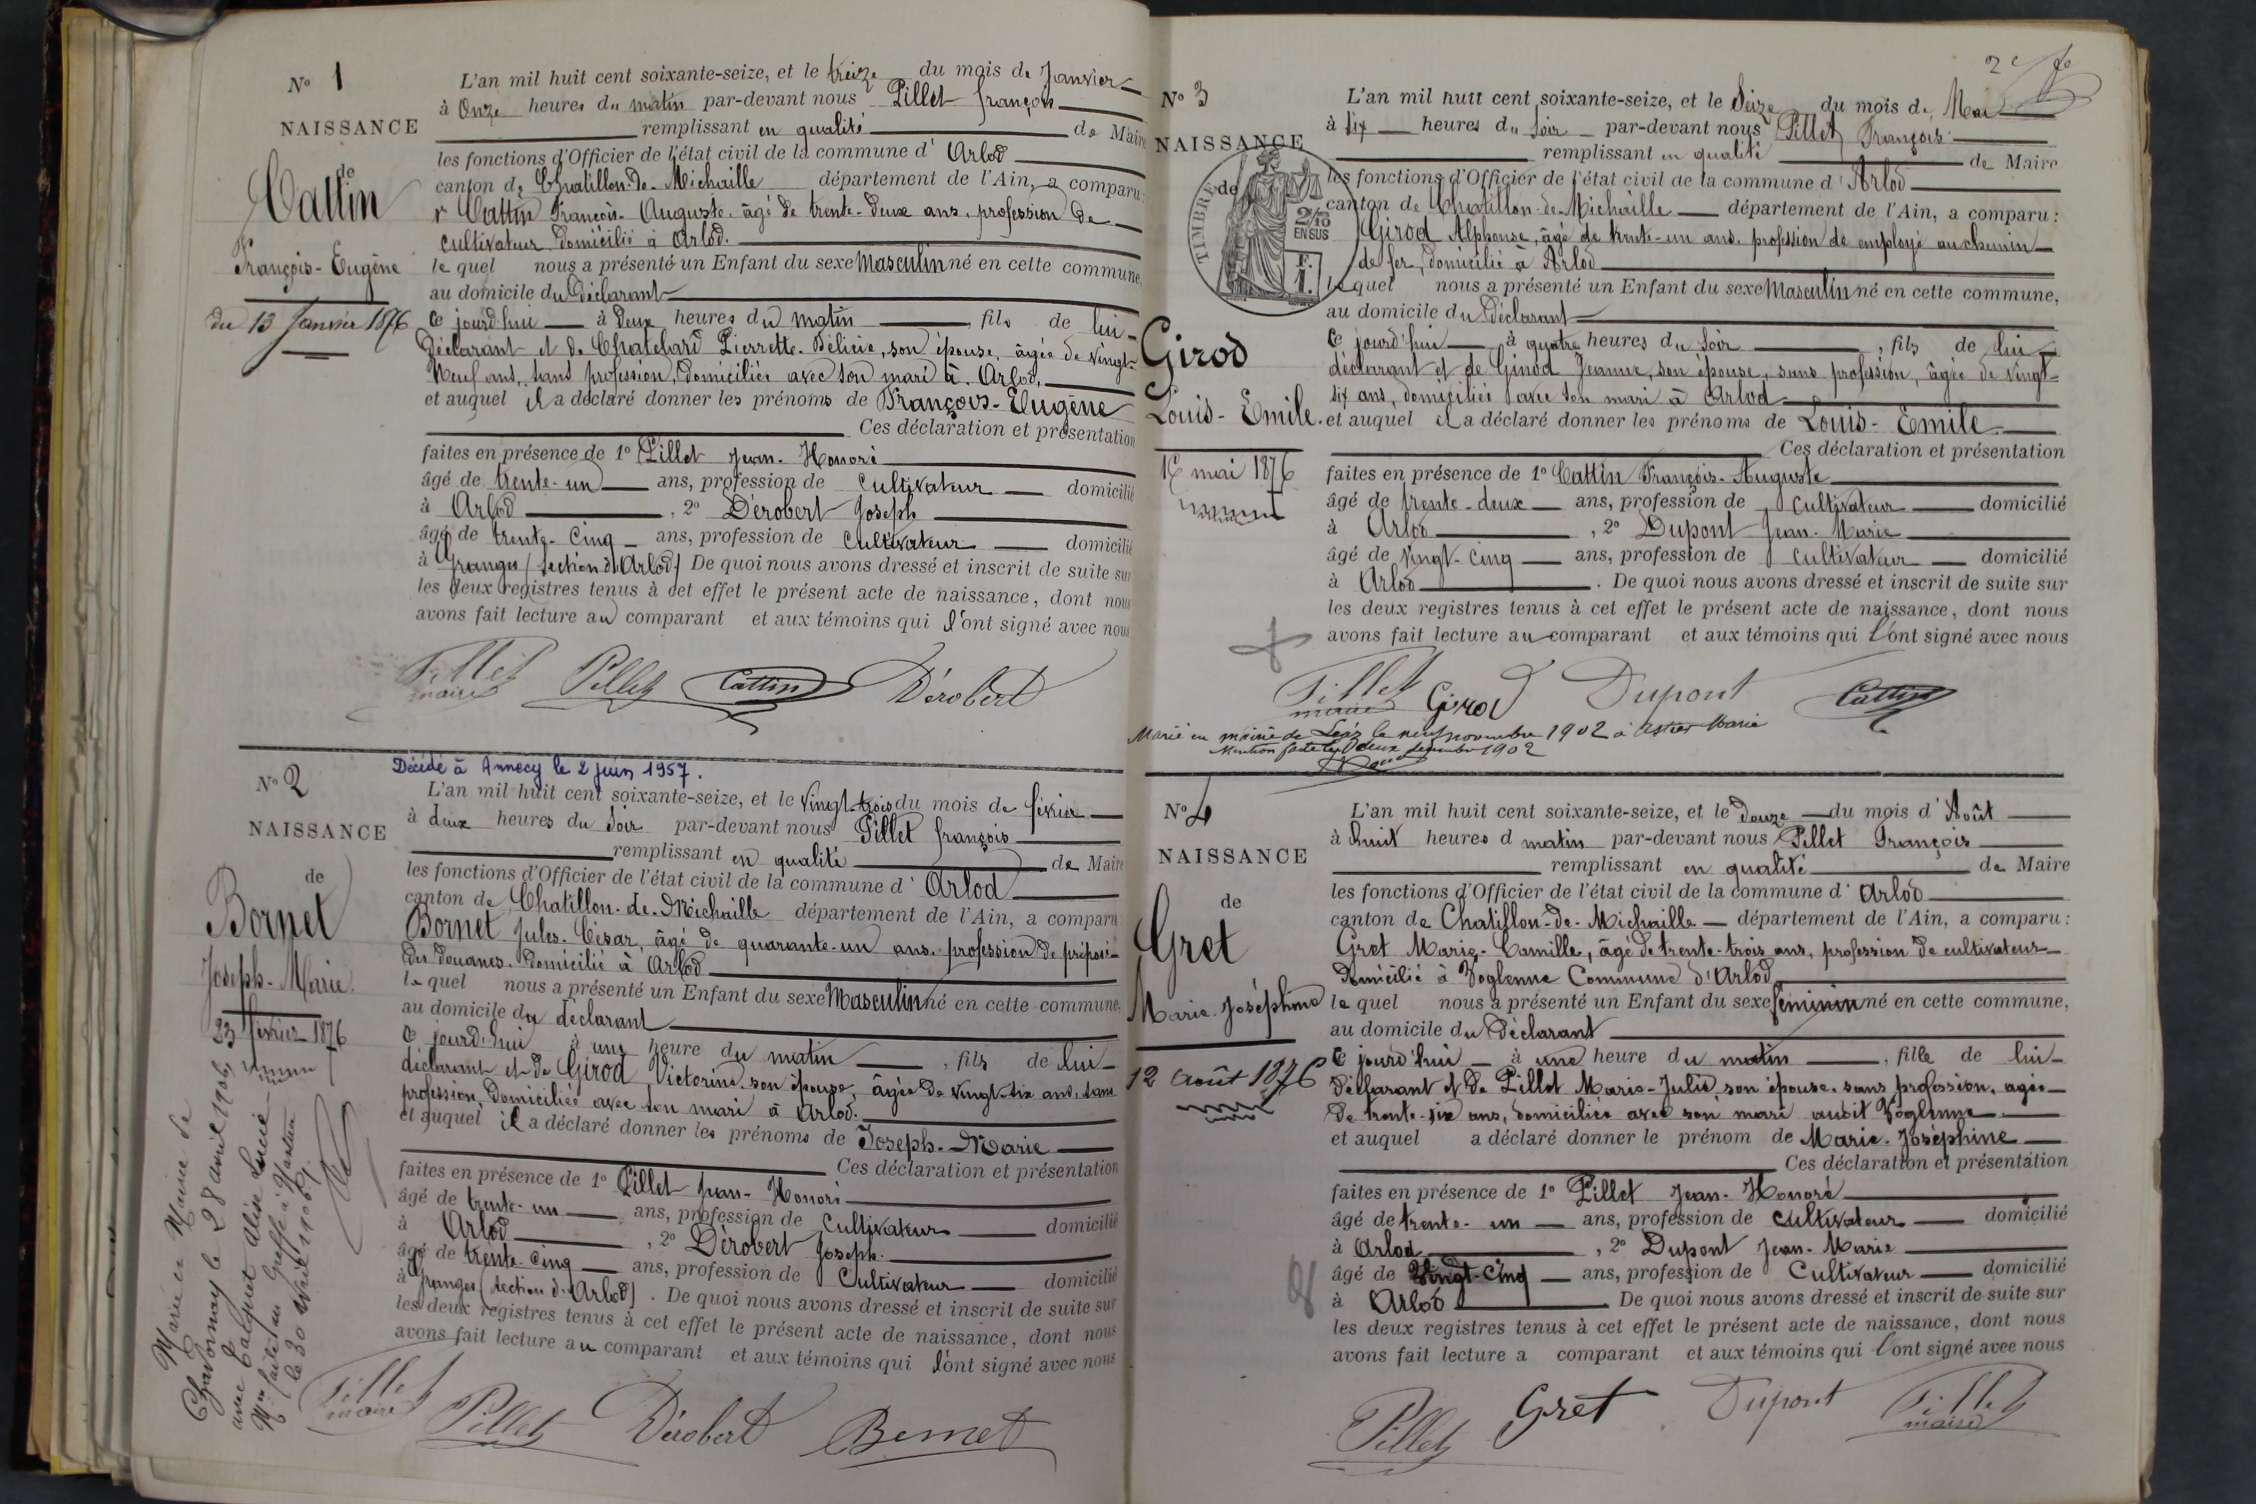 N° 1
NAISSANCE
de
Cattin
François-Eugène
du 13 Janvier 1876
L'an mil huit cent soixante-seize, et le treize du mois de Janvier
à Onze heures du matin par-devant nous Pillet françois
remplissant en qualité de Maire
les fonctions d'Officier de l'état civil de la commune d' Arlod
canton de Chatillon-de-Michaille département de l'Ain, a comparu:
Cattin François-Auguste, âgé de trente-deux ans, profession de
cultivateur domicilié à Arlod.
le quel nous a présenté un Enfant du sexe Masculin né en cette commune,
au domicile du déclarant
Ce jourd'hui à deux heures du matin, fils de lui
Déclarant et de Chatelard Pierrette-Félicie, son épouse, âgée de vingt-
Neuf ans, sans profession, domiciliée avec son mari à Arlod,
et auquel il a déclaré donner les prénoms de François-Eugène
Ces déclaration et présentation
faites en présence de 1° Pillet Jean-Honoré
âgé de trente-un ans, profession de cultivateur domicilié
à Arlod, 2° Dérobert Joseph
âgé de trente-cinq ans, profession de cultivateur domicilié
à Granges (section d'Arlod) De quoi nous avons dressé et inscrit de suite sur
les deux registres tenus à cet effet le présent acte de naissance, dont nous
avons fait lecture au comparant et aux témoins qui l'ont signé avec nous
Pillet maire Pillet Cattin Dérobert
Décédé à Annecy le 2 juin 1957.
N° 2
NAISSANCE
de
Bornet
Joseph-Marie
23 février 1876
Marié en Mairie de
Chavornay le 28 avril 1906,
avec Calquet Alise Lucie
Mon faite au Greffe à Nantua
le 30 avril 1906
L'an mil huit cent soixante-seize, et le vingt-trois du mois de février
à deux heures du soir par-devant nous Pillet françois
remplissant en qualité de Maire
les fonctions d'Officier de l'état civil de la commune d' Arlod
canton de Chatillon-de-Michaille département de l'Ain, a comparu
Bornet Jules-César, âgé de quarante-un ans, profession de préposé
des douanes domicilié à Arlod
le quel nous a présenté un Enfant du sexe Masculin né en cette commune,
au domicile du déclarant
Ce jourd'hui à une heure du matin, fils de lui
déclarant et de Girod Victorine son épouse, âgée de vingt-six ans, sans
profession, domiciliée avec son mari à Arlod.
et auquel il a déclaré donner les prénoms de Joseph-Marie
Ces déclaration et présentation
faites en présence de 1° Pillet Jean-Honoré
âgé de trente-un ans, profession de cultivateur domicilié
à Arlod, 2° Dérobert Joseph
âgé de trente-cinq ans, profession de cultivateur domicilié
à Granges (section d'Arlod). De quoi nous avons dressé et inscrit de suite sur
les deux registres tenus à cet effet le présent acte de naissance, dont nous
avons fait lecture au comparant et aux témoins qui l'ont signé avec nous
Pillet maire Pillet Dérobert Bornet
2e fo
N° 3
NAISSANCE
de
TIMBRE
2/10
EN SUS
F.
1.
Girod
Louis-Emile.
16 mai 1876
L'an mil huit cent soixante-seize, et le Seize du mois de Mai
à six heures du soir par-devant nous Pillet François
remplissant en qualité de Maire
les fonctions d'Officier de l'état civil de la commune d' Arlod
canton de Chatillon-de-Michaille département de l'Ain, a comparu:
Girod Alphonse, âgé de trente-un ans, profession de employé au chemin
de fer, domicilié à Arlod
le quel nous a présenté un Enfant du sexe Masculin né en cette commune,
au domicile du Déclarant
Ce jourd'hui à quatre heures du soir, fils de lui
déclarant et de Girod Jeanne, son épouse, sans profession, âgée de vingt-
six ans, domiciliée avec son mari à Arlod
et auquel il a déclaré donner les prénoms de Louis-Emile
Ces déclaration et présentation
faites en présence de 1° Cattin François-Auguste
âgé de trente-deux ans, profession de Cultivateur domicilié
à Arlod, 2° Dupont Jean-Marie
âgé de vingt-cinq ans, profession de cultivateur domicilié
à Arlod. De quoi nous avons dressé et inscrit de suite sur
les deux registres tenus à cet effet le présent acte de naissance, dont nous
avons fait lecture au comparant et aux témoins qui l'ont signé avec nous
Pillet maire Girod Dupont Cattin
Marié en mairie de Léaz le neuf novembre 1902 à Astier Marie
Mention faite le deux décembre 1902
N° 4
NAISSANCE
de
Gret
Marie-Joséphine
12 Août 1876
L'an mil huit cent soixante-seize, et le douze du mois d' Août
à huit heures d matin par-devant nous Pillet François
remplissant en qualité de Maire
les fonctions d'Officier de l'état civil de la commune d' Arlod
canton de Chatillon-de-Michaille département de l'Ain, a comparu:
Gret Marie-Camille, âgé de trente-trois ans, profession de cultivateur
Domicilié à Voglenne Commune d'Arlod
le quel nous a présenté un Enfant du sexe féminin né en cette commune,
au domicile du Déclarant
Ce jourd'hui à une heure du matin, fille de lui
Déclarant et de Pillet Marie-Julie, son épouse, sans profession, âgée
de trente-six ans, domiciliée avec son mari audit Voglenne
et auquel a déclaré donner le prénom de Marie-Joséphine
Ces déclaration et présentation
faites en présence de 1° Pillet Jean-Honoré
âgé de trente-un ans, profession de cultivateur domicilié
à Arlod, 2° Dupont Jean-Marie
âgé de vingt-cinq ans, profession de Cultivateur domicilié
à Arlod De quoi nous avons dressé et inscrit de suite sur
les deux registres tenus à cet effet le présent acte de naissance, dont nous
avons fait lecture a comparant et aux témoins qui l'ont signé avec nous
Pillet Gret Dupont Pillet maire